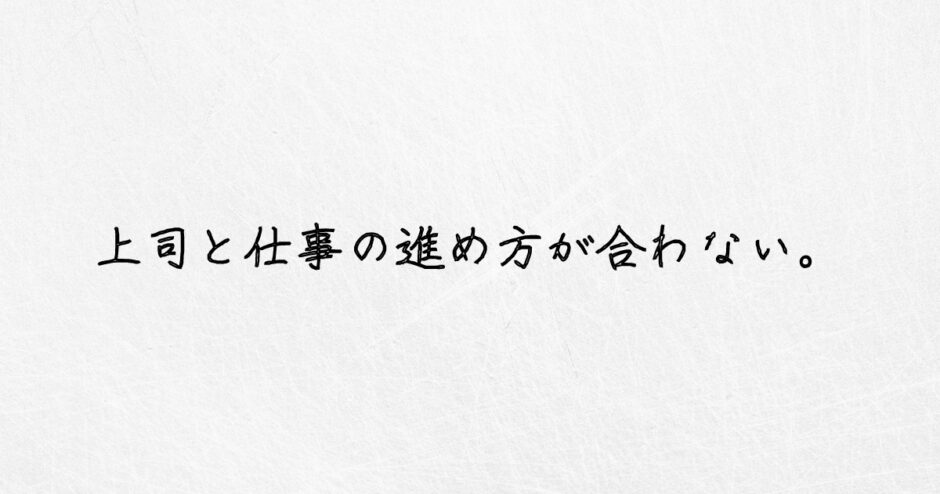 上司と仕事の進め方が合わない。